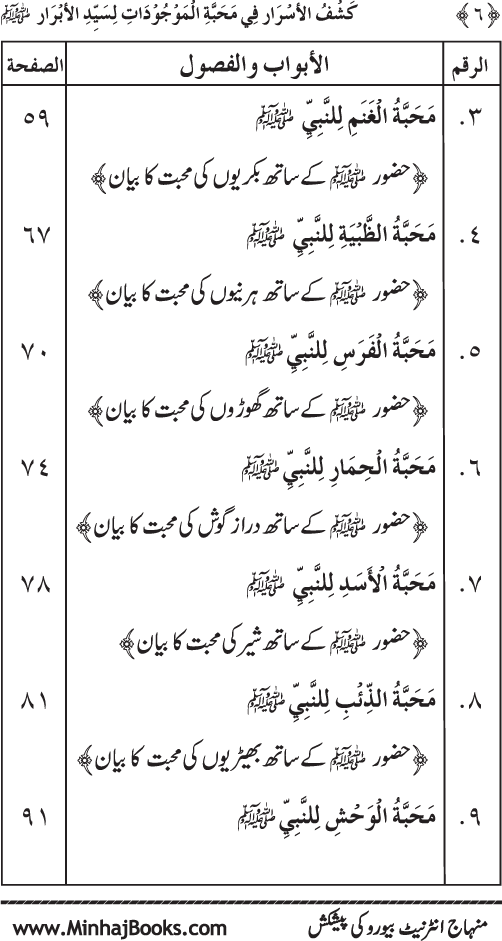 ﴿٦﴾ كَشْفُ الأَسْرَارِ فِي مَحَبَّةِ الْمَوْجُوْدَاتِ لِسَيِّدِ الأَبْرَارِ ﷺ
الرقم الأبواب والفصول الصفحة
٣. مَحَبَّةُ الْغَنَمِ لِلنَّبِيِّ ﷺ ٥٩
﴿حضور ﷺ کے ساتھ بکریوں کی محبت کا بیان﴾
٤. مَحَبَّةُ الظَّبْيَةِ لِلنَّبِيِّ ﷺ ٦٧
﴿حضور ﷺ کے ساتھ ہرنیوں کی محبت کا بیان﴾
٥. مَحَبَّةُ الْفَرَسِ لِلنَّبِيِّ ﷺ ٧٠
﴿حضور ﷺ کے ساتھ گھوڑوں کی محبت کا بیان﴾
٦. مَحَبَّةُ الْحِمَارِ لِلنَّبِيِّ ﷺ ٧٤
﴿حضور ﷺ کے ساتھ دراز گوش کی محبت کا بیان﴾
٧. مَحَبَّةُ الْأَسَدِ لِلنَّبِيِّ ﷺ ٧٨
﴿حضور ﷺ کے ساتھ شیر کی محبت کا بیان﴾
٨. مَحَبَّةُ الذِّئْبِ لِلنَّبِيِّ ﷺ ٨١
﴿حضور ﷺ کے ساتھ بھیڑیوں کی محبت کا بیان﴾
٩. مَحَبَّةُ الْوَحْشِ لِلنَّبِيِّ ﷺ ٩١
منہاج انٹرنیٹ بیورو کی پیشکش www.MinhajBooks.com